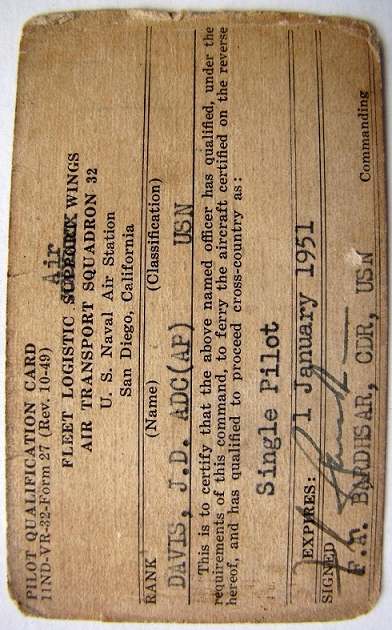 PILOT QUALIFICATION CARD
11ND-VR-32-Form 27 (Rev. 10-49)
Air
FLEET LOGISTIC SUPPORT WINGS
AIR TRANSPORT SQUADRON 32
U. S. Naval Air Station
San Diego, California
RANK (Name) (Classification)
DAVIS, J.D. ADC(AP) USN
This is to certify that the above named officer has qualified, under the
requirements of this command, to ferry the aircraft certified on the reverse
hereof, and has qualified to proceed cross-country as:
Single Pilot
EXPIRES: 1 January 1951
SIGNED
F.A. BARDUSAR, CDR, USN Commanding